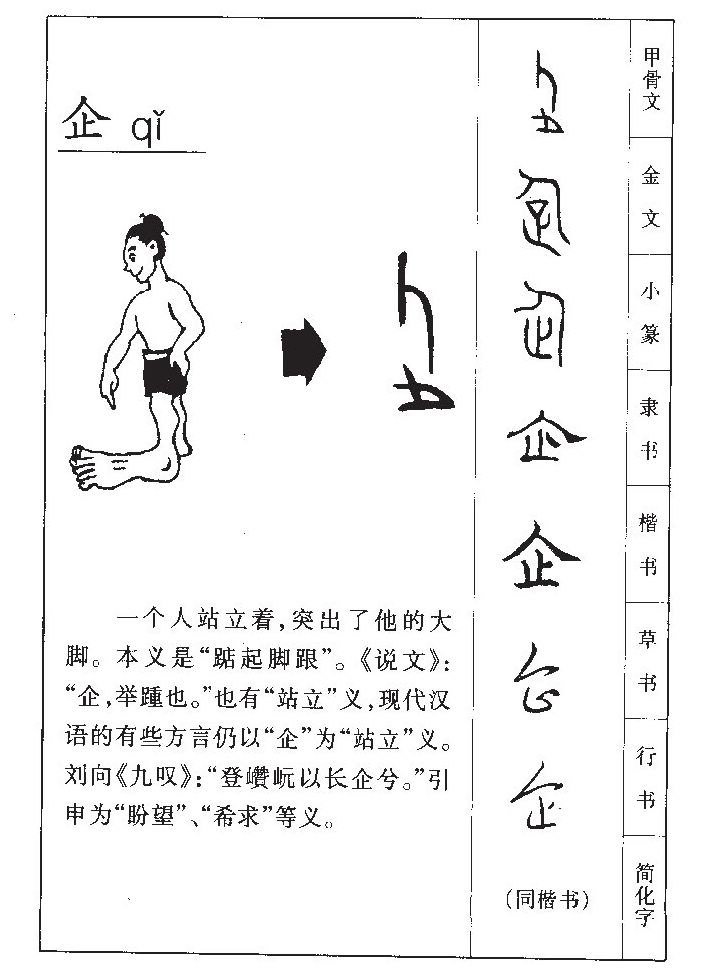 企 qǐ
一个人站立着,突出了他的大
脚。本义是“踮起脚跟”。《说文》:
“企,举踵也。”也有“站立”义,现代汉
语的有些方言仍以“企”为“站立”义。
刘向《九叹》:“登巑岏以长企兮。”引
申为“盼望”、“希求”等义。
甲骨文
金文
小篆
隶书
企
楷书
企
草书
行书
企
简化字
(同楷书)